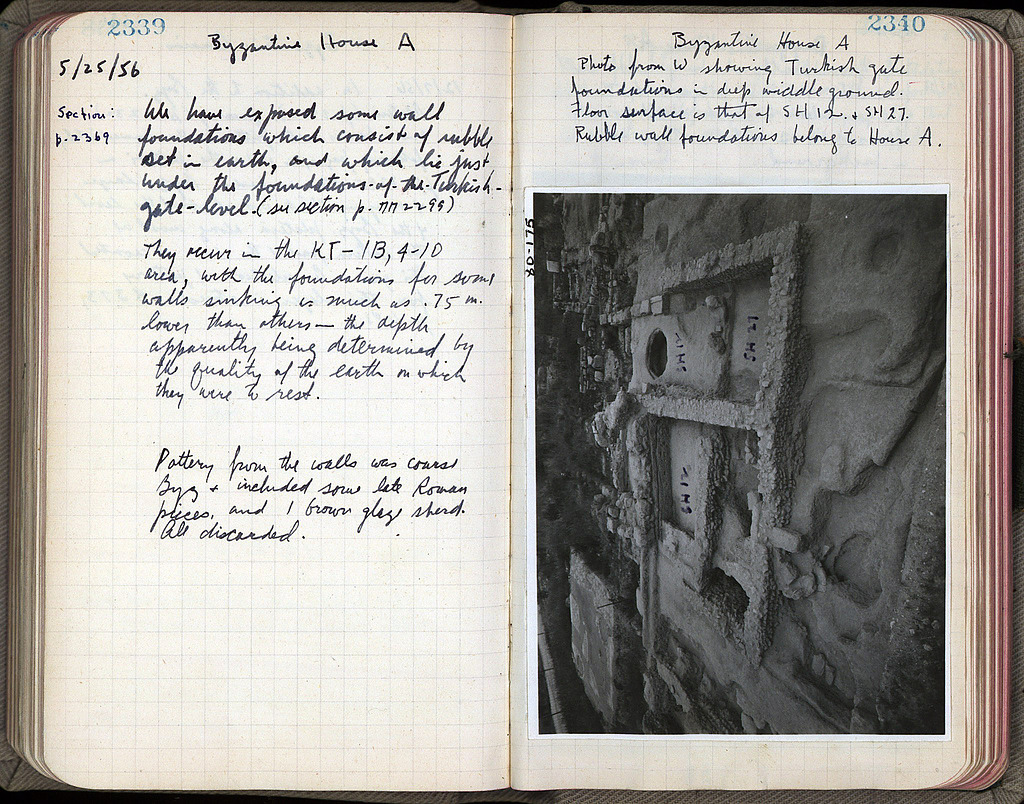 2339
Byzantine House A
5/25/56
Section:
p. 2369
We have exposed some wall
foundations which consist of rubble
set in earth, and which lie just
under the foundations-of-the-Turkish-
gate-level. (see section p. 2299)
They occur in the KT-1B, 4-10
area, with the foundations for some
walls sinking as much as .75 m.
lower than others — the depth
apparently being determined by
the quality of the earth on which
they were to rest.
Pottery from the walls was coarse
Byz + included some late Roman
pieces, and 1 brown glaze sherd.
All discarded.
2340
Byzantine House A
Photo from W showing Turkish gate
foundations in deep middle ground.
Floor surface is that of SH 12. + SH 27.
Rubble wall foundations belong to House A.
80-175
SH 12